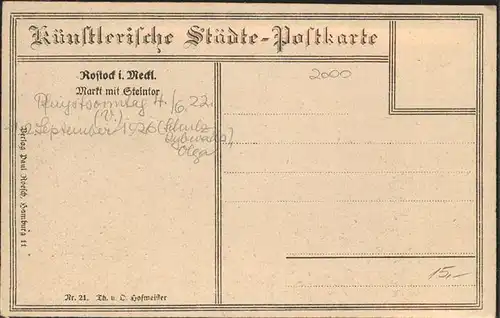 Künstlerische Städte-Postkarte
Rostock i. Meckl.
Markt mit Steintor
2000
Pfingstsonntag 4./6.22.
(V.)
2. September 1926 (Schulz-
Olga
Verlag Paul Roesch, Hamburg 11
15,-
Nr. 21. Th. u. O. Hofmeister